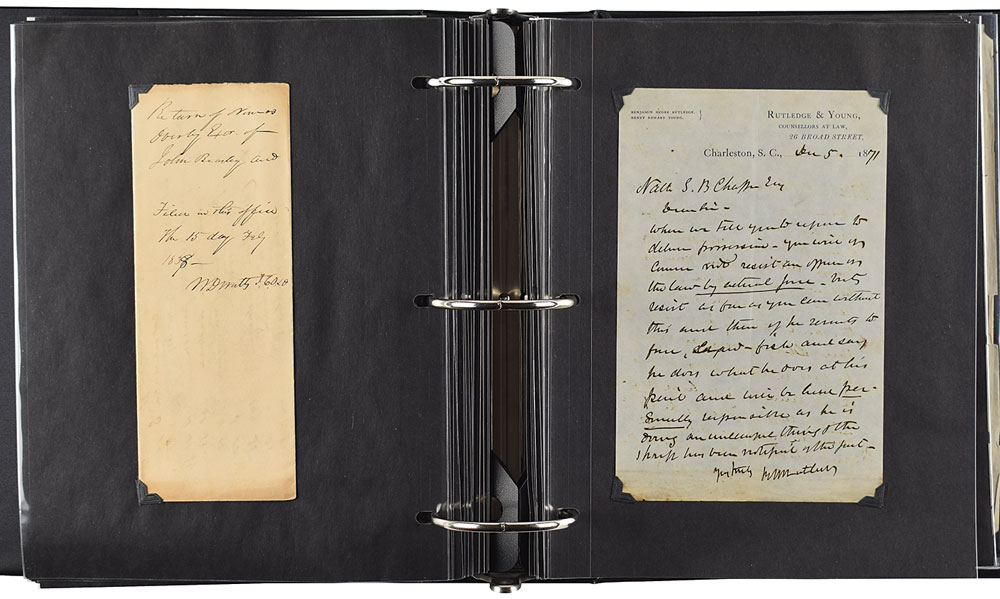 Return of
Exr. of
John and
Filed in this office
the 15 day Feby
18
BENJAMIN HUGER RUTLEDGE.
HENRY EDWARD YOUNG.
RUTLEDGE & YOUNG,
COUNSELLORS AT LAW,
26 BROAD STREET.
Charleston, S. C., 5. 1871
S. B
Dear Sir –
when we tell you to refuse to
deliver possession – you will of
course not resist an officer of
the law by actual force – but
resist as far as you can without
this and then if he resorts to
force, and say
he does what he does at his
peril and will be held per-
sonally responsible as he is
doing an unlawful thing & the
Sheriff has been notified of the fact –
Yrs truly